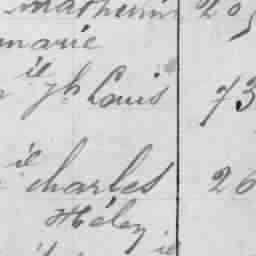 mathurin 205
marie
il jh Louis 73
il charles 26
Héley
il